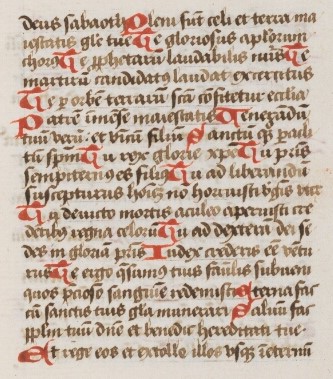 deus sabaoth Pleni sunt celi et terra ma
iestatis gle tue Te gloriosus aplorum
chorus Te pphetarum laudabilis nus Te
martirum candidatus laudat exercitus
Te p orbem terrarum scta cofitetur ecclia
Patrem imese maiestatis Venerandu
tuum veru et vnicu filiu Sanctu qz pacli
tu spm Tu rex glorie xpe Tu pris
sempiternus es filius Tu ad liberandu
suscepturus hoiem no horruisti vgis vter
Tu deuicto mortis aculeo aperuisti cre
detibus regna celoru Tu ad dextera dei se
des in gloria pris Iudex crederis ee ventu
rus Te ergo qsumus tuis faulis subueni
quos pcioso sanguine redemisti Eterna fac
cu sanctis tuis gla munerari Saluum fac
pplm tuum dne et benedic hereditati tue
Et rege eos et extolle illos vsqz in eternum